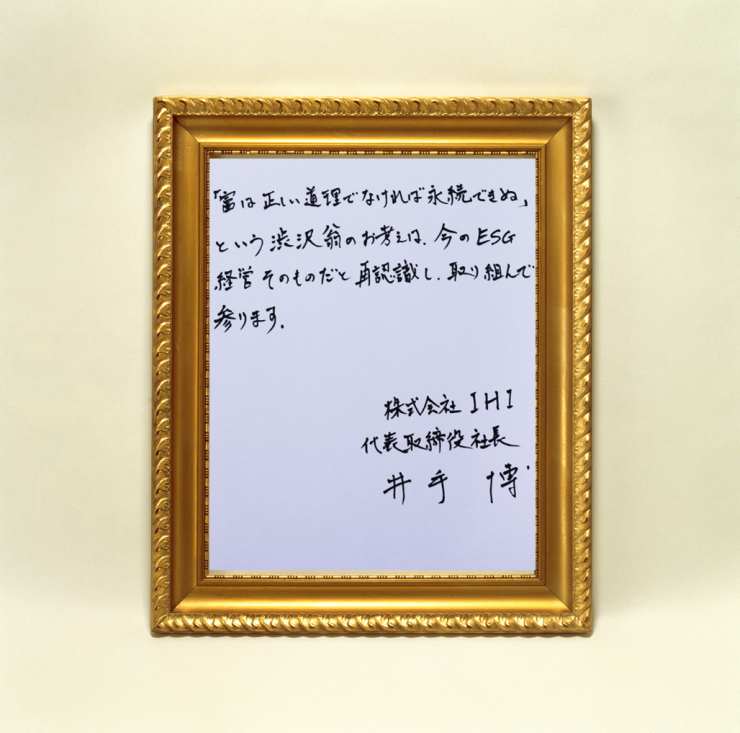 「富は正しい道理でなければ永続できぬ」
という渋沢翁のお考えは、今のESG
経営そのものだと再認識し、取り組んで
参ります。
株式会社IHI
代表取締役社長
井手 博